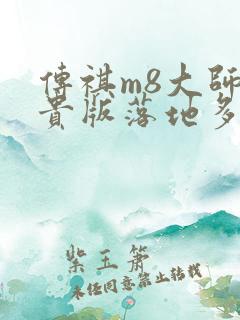 傳祺m8大師
貴版落地多
紫玉簫
未經同意禁止轉載